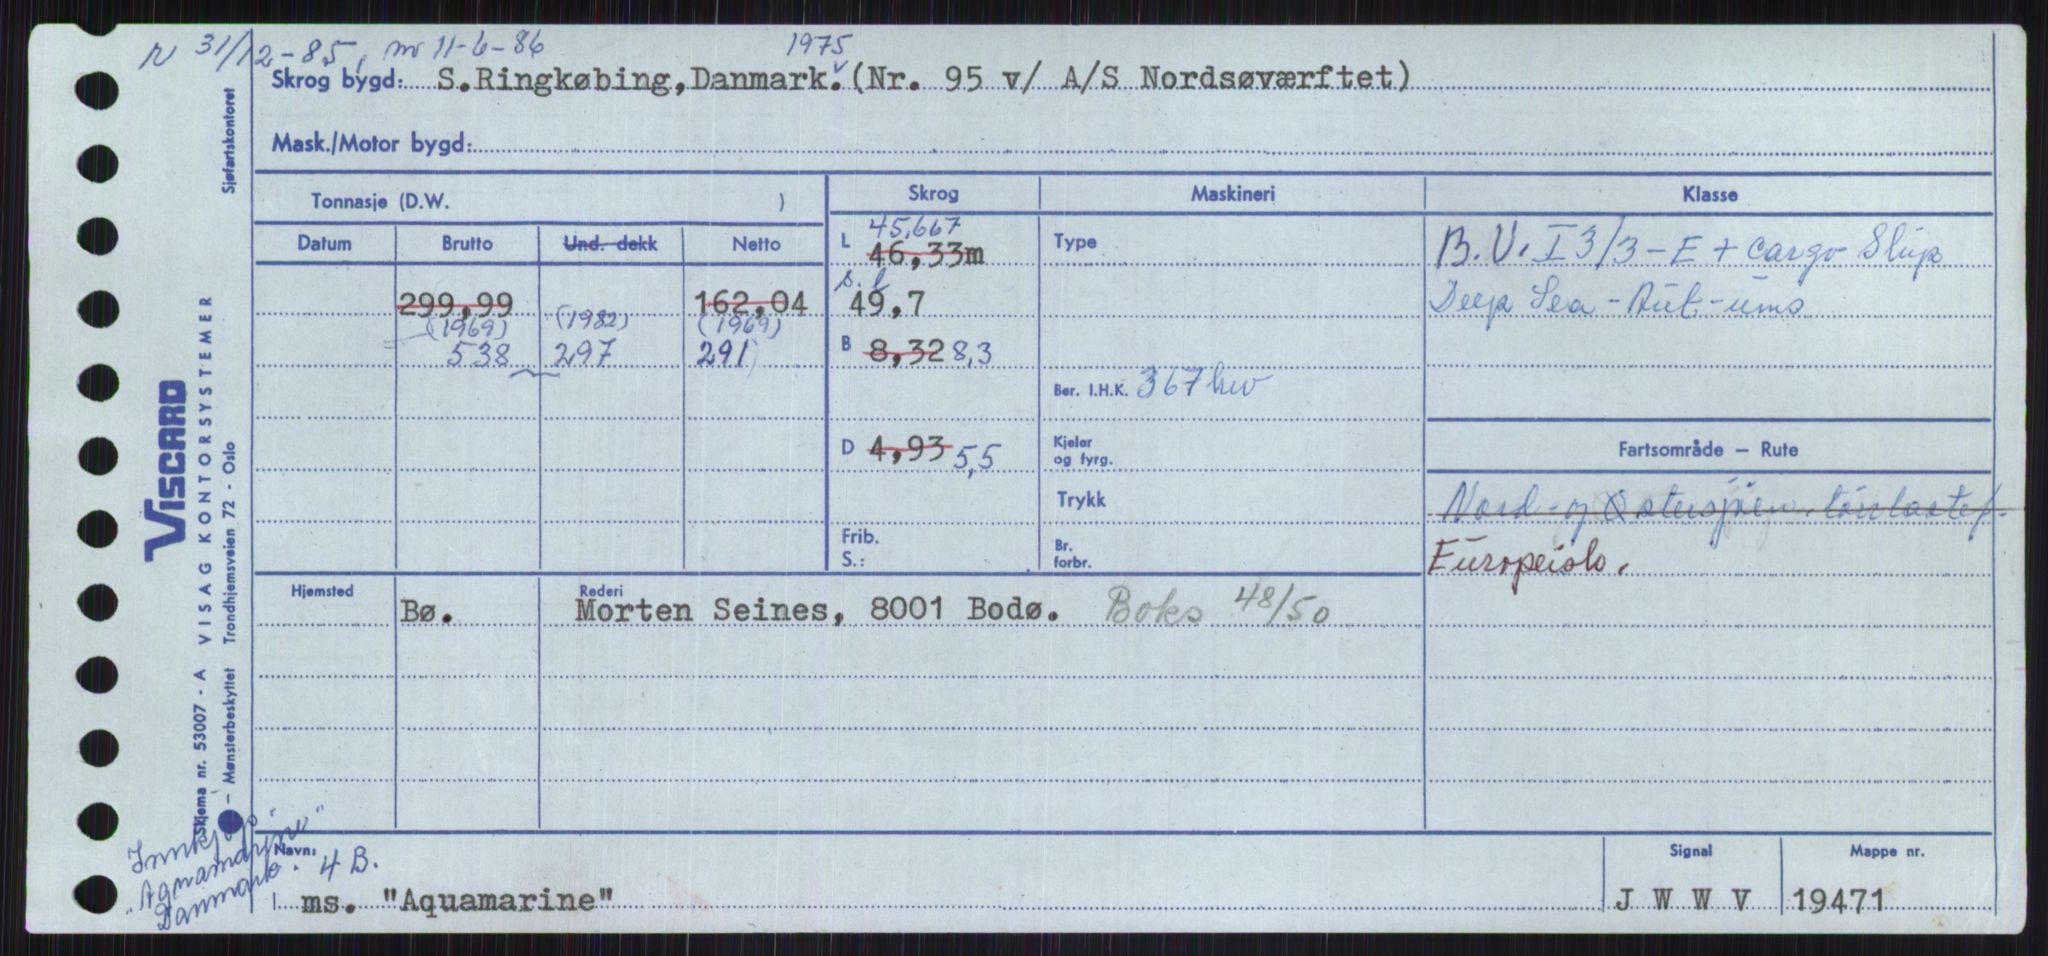 N 31/12-85, nr 11-6-86
1975
Skrog bygd: S.Ringkøbing,Danmark.(Nr. 95 v/ A/S Nordsøværftet)
Mask./Motor bygd:
Tonnasje (D.W. )
Skrog
Maskineri
Klasse
Datum
Brutto
Und. dekk
Netto
299,99
162,04
(1969)
(1982)
(1969)
538
297
291
L
45,667
46,33m
49,7
B
8,32 8,3
D
4,93 5,5
Frib.
S.:
Type
Ber. I.H.K. 367 kw
Kjeler
og fyrg.
Trykk
Br.
forbr.
B.V. I 3/3 - E + Cargo Ship
Deep Sea - Aut - ums
Fartsområde — Rute
Nord- og Østersjøen. tørrlastef.
Europeisk.
Hjemsted
Bø.
Rederi
Morten Seines, 8001 Bodø. Boks 48/50
Navn:
4 B.
ms. "Aquamarine"
Signal
J W W V
Mappe nr.
19471
Innkjøp
"Aquamarine"
Danmark.
Sjøfartskontoret
VISCARD
Skjema nr. 53007 - A VISAG KONTORSYSTEMER
— Mønsterbeskyttet Trondhjemsveien 72 - Oslo